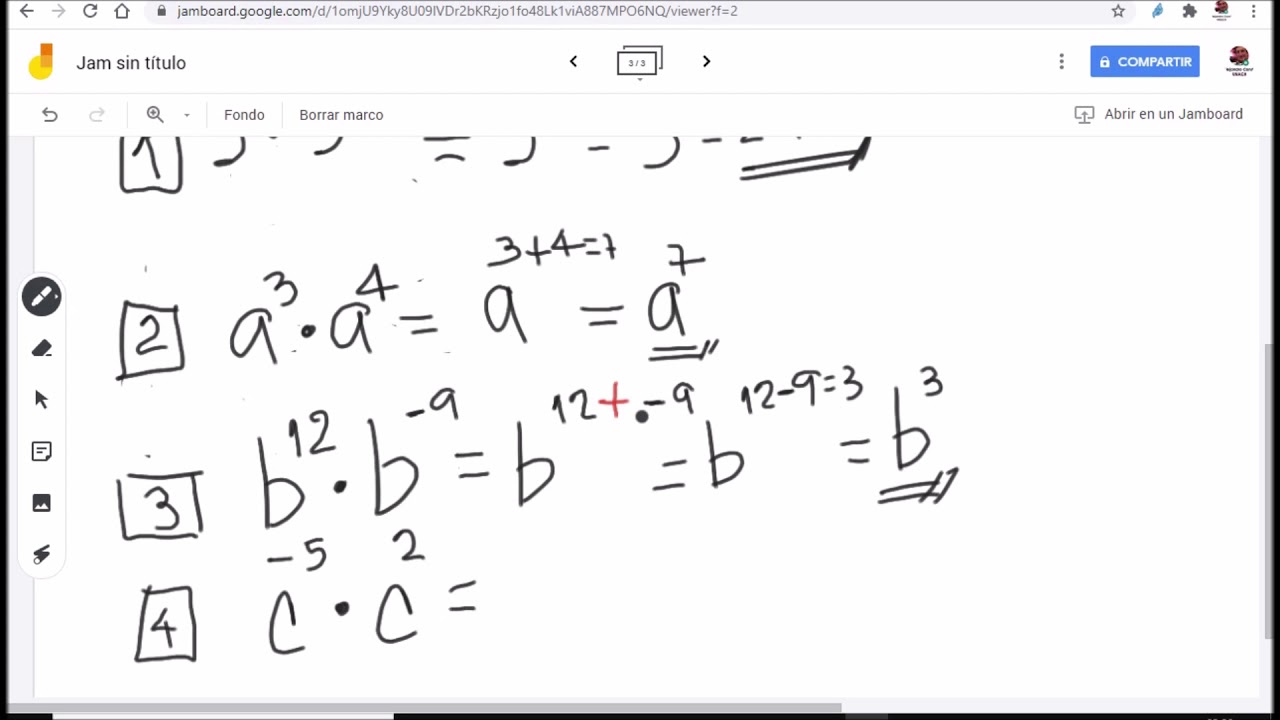 jamboard.google.com/d/1omjU9Yky8U09IVDr2bKRzjo1fo48Lk1viA887MPO6NQ/viewer?f=2
Jam sin título
3 / 3
COMPARTIR
Fondo
Borrar marco
Abrir en un Jamboard
1
2 a³ · a⁴ = a³⁺⁴⁼⁷ = a⁷
3 b¹² · b⁻⁹ = b¹²⁺·⁻⁹ = b¹²⁻⁹⁼³ = b³
4 c⁻⁵ · c² =